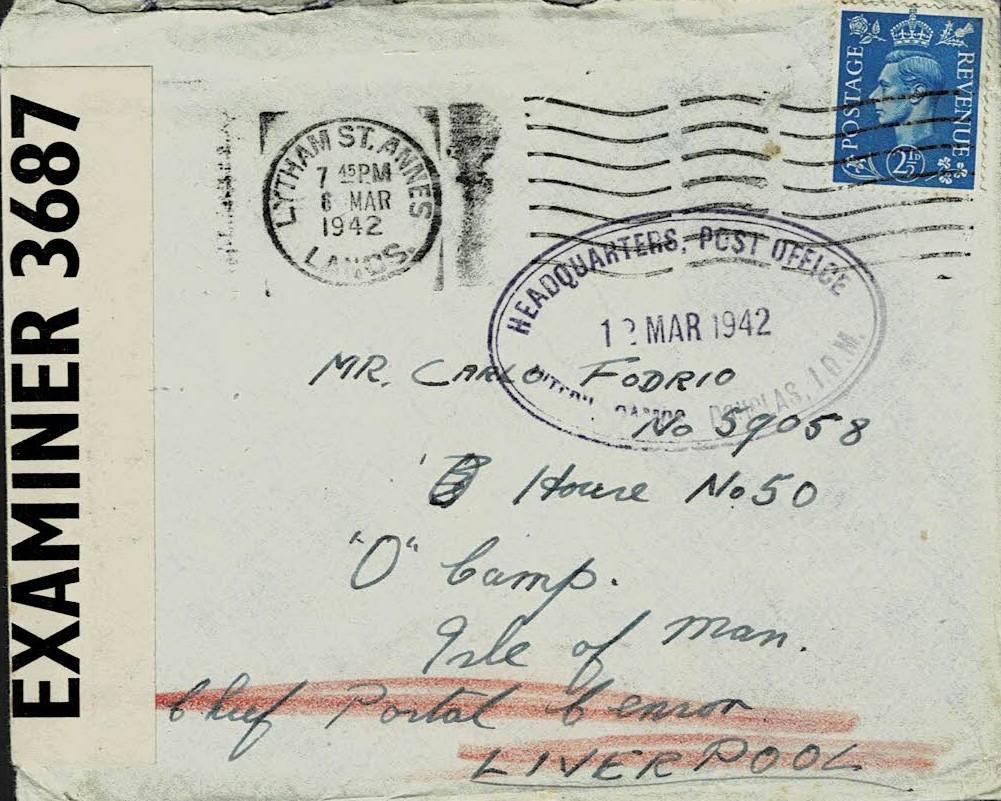 EXAMINER 3687
POSTAGE
REVENUE
2½D
LYTHAM ST. ANNES
7 45PM
8 MAR
1942
LANCS.
HEADQUARTERS, POST OFFICE
MAR 1942
DOUGLAS, I.O.M.
MR. CARLO FODRIO
No 59058
House No 50
"O" Camp.
Isle of Man.
Chief Postal Censor
LIVERPOOL